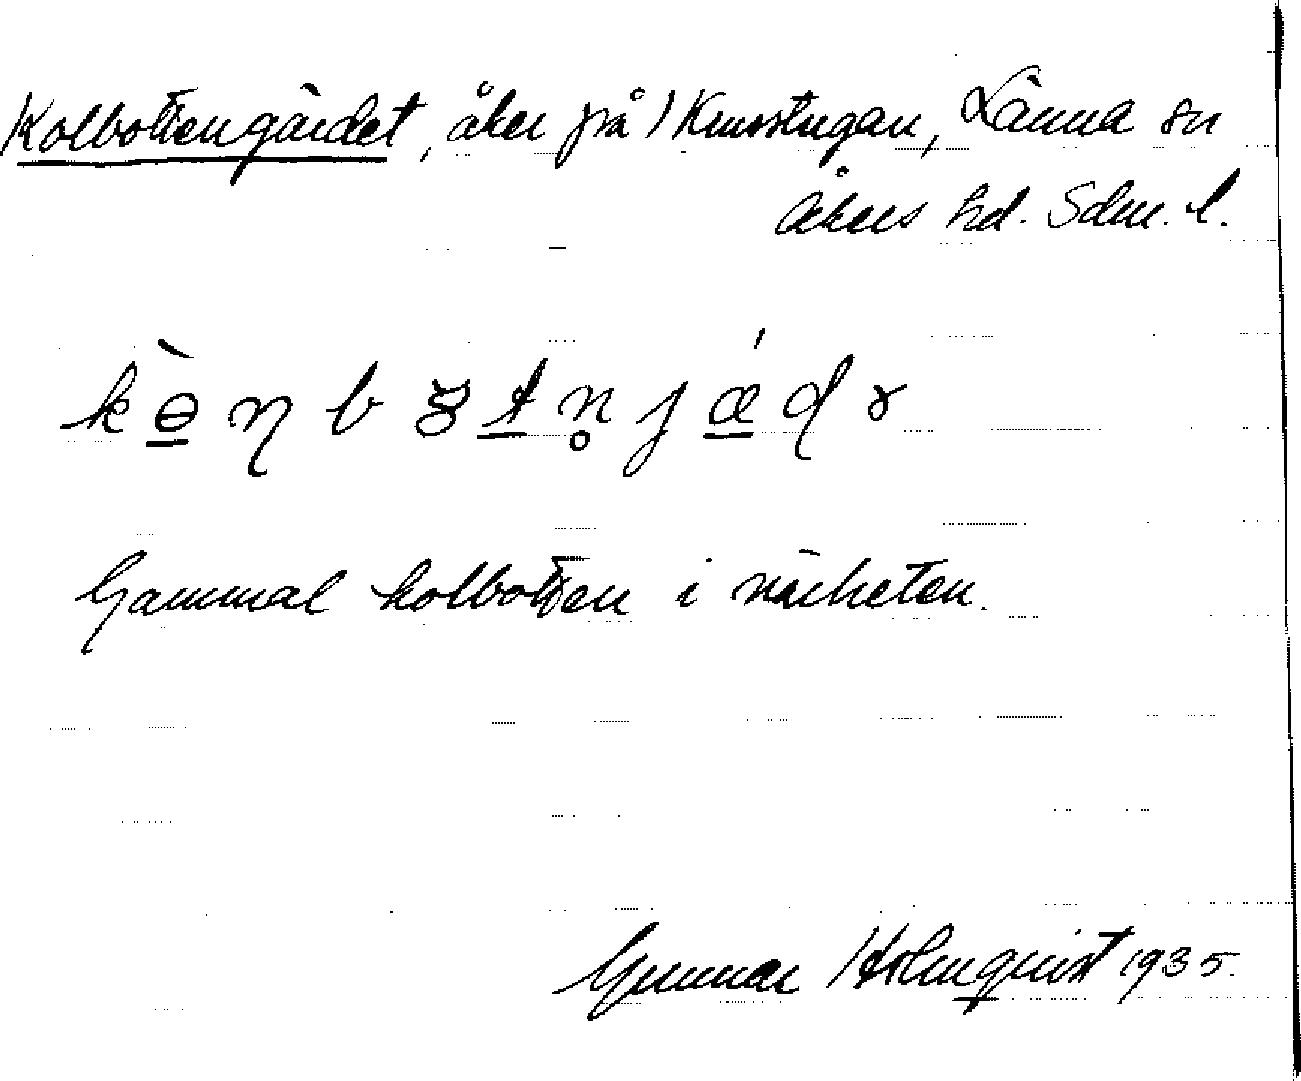 Kolbottengärdet, åker på Krusstugan, Länna sn
Åkers hd. Sdm. l.
Gammal kolbotten i närheten.
Gunnar Holmquist 1935.